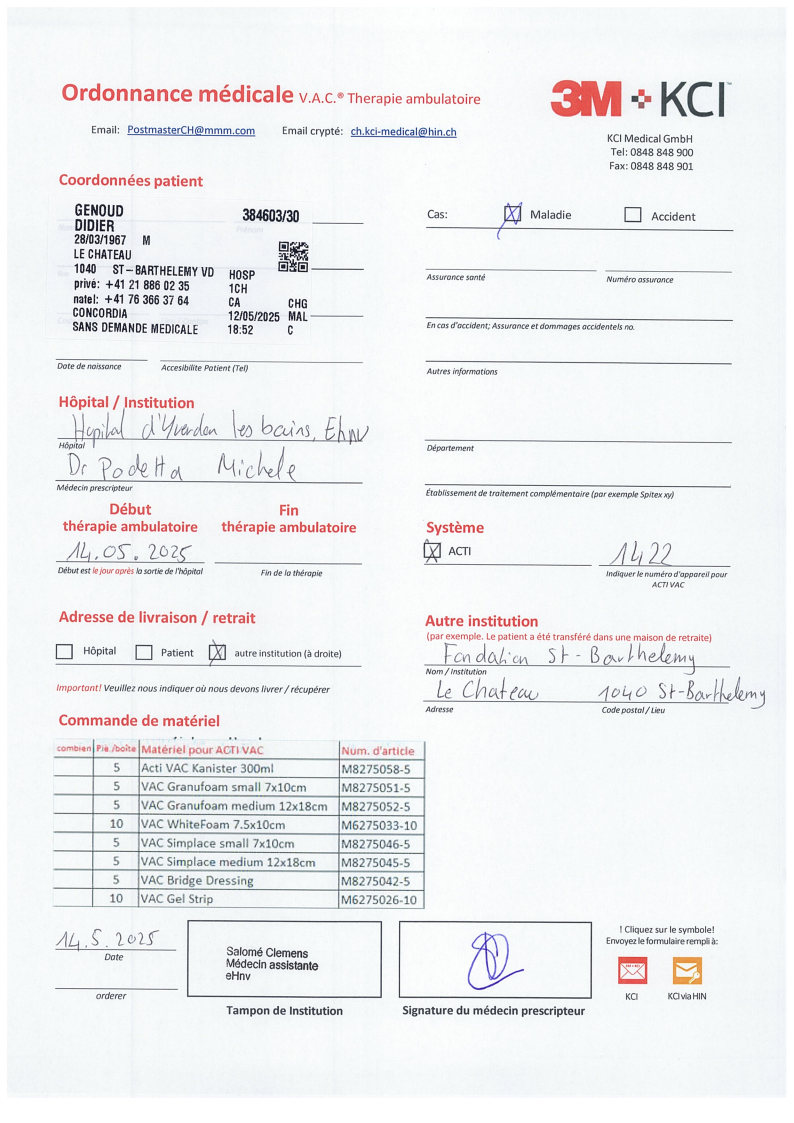 Ordonnance médicale V.A.C.® Therapie ambulatoire
3M KCI™
Email: PostmasterCH@mmm.com Email crypté: ch.kci-medical@hin.ch
KCI Medical GmbH
Tel: 0848 848 900
Fax: 0848 848 901
Coordonnées patient
GENOUD 384603/30
DIDIER
28/03/1967 M
LE CHATEAU
1040 ST-BARTHELEMY VD HOSP
privé: +41 21 886 02 35 1CH
natel: +41 76 366 37 64 CA CHG
CONCORDIA 12/05/2025 MAL
SANS DEMANDE MEDICALE 18:52 C
Date de naissance Accesibilite Patient (Tel)
Cas: Maladie Accident
Assurance santé Numéro assurance
En cas d'accident; Assurance et dommages accidentels no.
Autres informations
Département
Établissement de traitement complémentaire (par exemple Spitex xy)
Hôpital / Institution
Hopital d'Yverdon les bains, EHNV
Hôpital
Dr Podetta Michele
Médecin prescripteur
Début thérapie ambulatoire
Fin thérapie ambulatoire
14.05.2025
Début est le jour après la sortie de l'hôpital Fin de la thérapie
Système
ACTI 1422
Indiquer le numéro d'appareil pour
ACTI VAC
Adresse de livraison / retrait
Hôpital Patient autre institution (à droite)
Important! Veuillez nous indiquer où nous devons livrer / récupérer
Autre institution
(par exemple. Le patient a été transféré dans une maison de retraite)
Fondation St-Barthelemy
Nom / Institution
Le Chateau 1040 St-Barthelemy
Adresse Code postal / Lieu
Commande de matériel
combien Pie./boîte Matériel pour ACTI VAC Num. d'article
5 Acti VAC Kanister 300ml M8275058-5
5 VAC Granufoam small 7x10cm M8275051-5
5 VAC Granufoam medium 12x18cm M8275052-5
10 VAC WhiteFoam 7.5x10cm M6275033-10
5 VAC Simplace small 7x10cm M8275046-5
5 VAC Simplace medium 12x18cm M8275045-5
5 VAC Bridge Dressing M8275042-5
10 VAC Gel Strip M6275026-10
14.5.2025
Date
orderer
Salomé Clemens
Médecin assistante
eHnv
Tampon de Institution
Signature du médecin prescripteur
! Cliquez sur le symbole!
Envoyez le formulaire rempli à:
KCI KCI via HIN